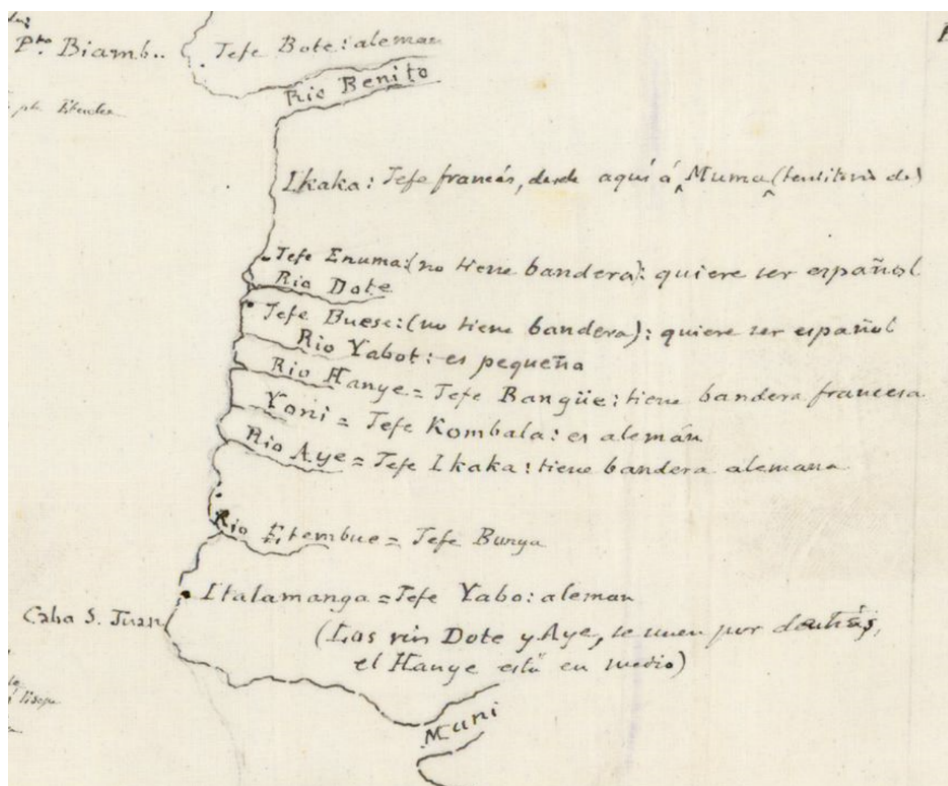 Pta. Biamb..
Jefe Bote: aleman
Rio Benito
Ikaka: Jefe francés, desde aquí á Muma (territorio de)
Jefe Enuma: (no tiene bandera): quiere ser español
Rio Dote
Jefe Buese: (no tiene bandera): quiere ser español
Rio Yabot: es pequeño
Rio Hanye = Jefe Bangüe: tiene bandera francesa
Yoni = Jefe Kombala: es alemán
Rio Aye = Jefe Ikaka: tiene bandera alemana
Rio Etembue = Jefe Bunya
Italamanga = Jefe Yabo: aleman
Cabo S. Juan
(Los rios Dote y Aye, se unen por detrás,
el Hanye está en medio)
Muni